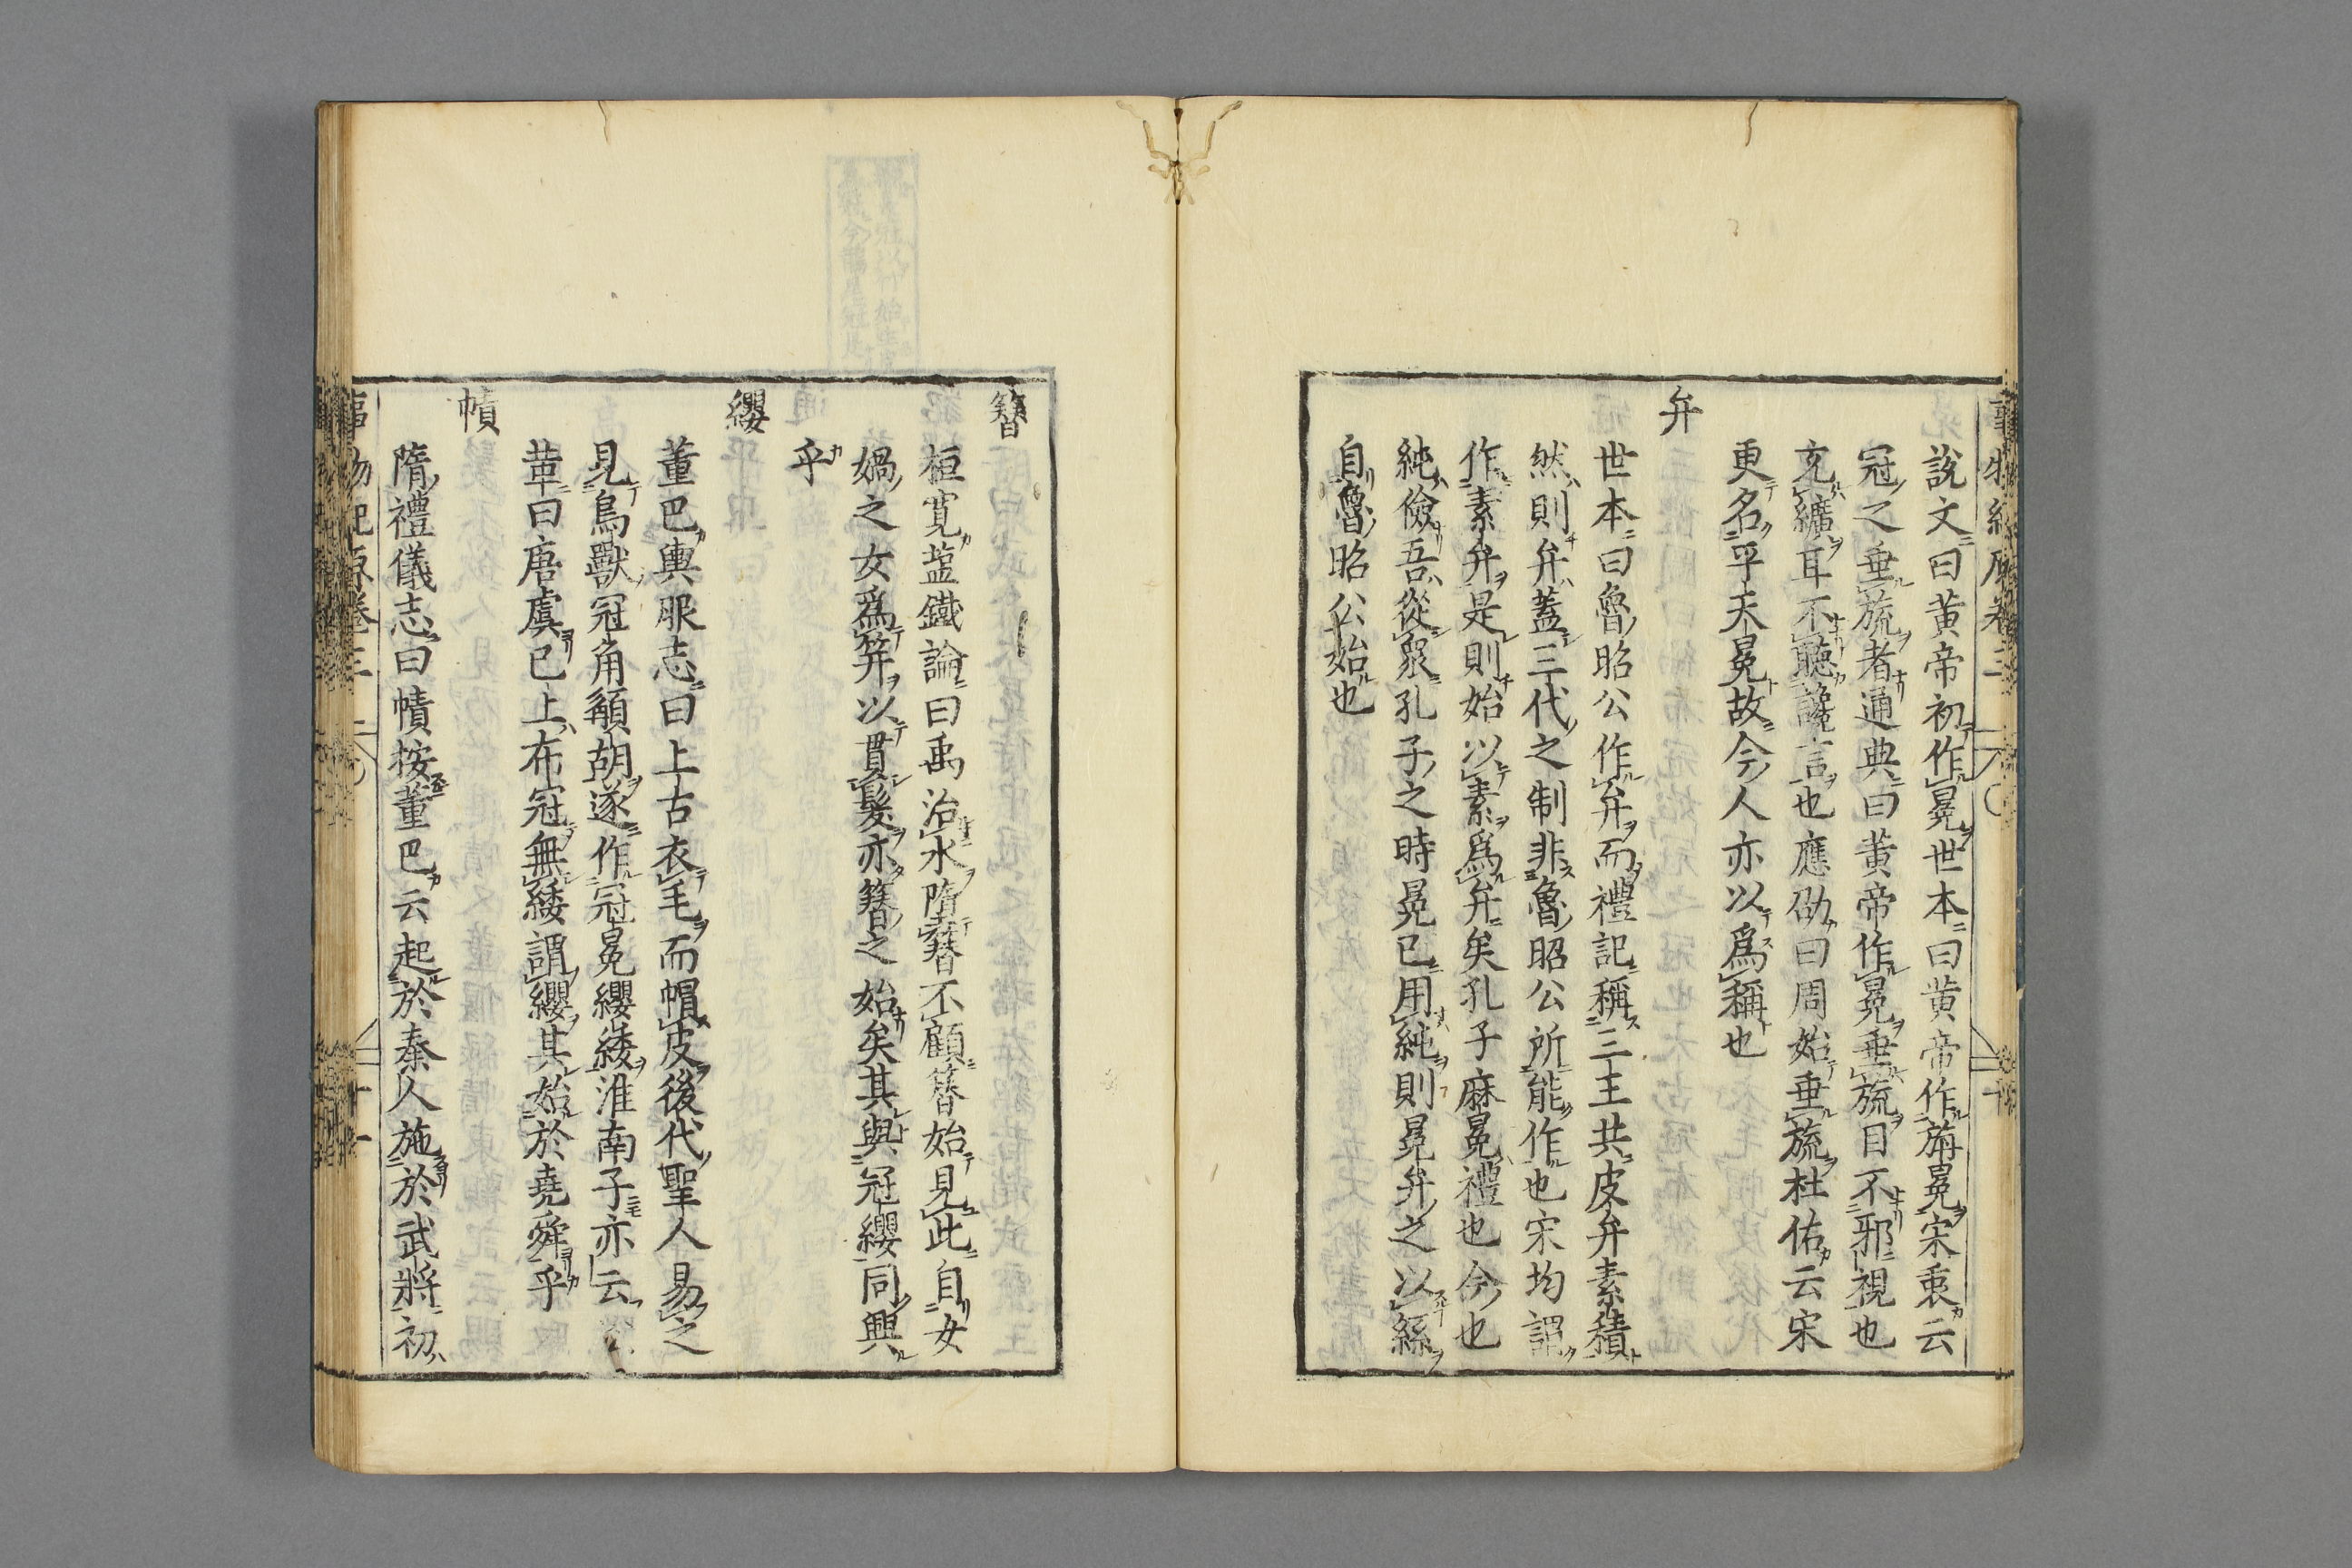 說文曰黄帝初作冕世本曰黄帝作旃冕宋衷云
冠之垂旒者通典曰黄帝作冕垂旒目不邪視也
充纊耳不聽讒言也應劭曰周始垂旒杜佑云宋
更名平天冕故今人亦以爲稱也
弁
世本曰魯昭公作弁而禮記稱三王共皮弁素積
然則弁蓋三代之制非魯昭公所能作也宋均謂
作素弁是則始以素爲弁矣孔子麻冕禮也今也
純儉吾從衆孔子之時冕已用純則冕弁之以絲
自魯昭公始也
簪
桓寛塩鐵論曰禹治水隋簪不顧簪始見此自女
媧之女爲笄以貫髮亦簪之始矣其與冠纓同興
乎
纓
董巴輿服志曰上古衣毛而帽皮後代聖人易之
見鳥獸冠角䫇胡遂作冠冕纓緌淮南子亦云
章曰唐虞已上布冠無緌謂纓其始於堯舜乎
幘
隋禮儀志曰幘按董巴云起於秦人施於武將初
事物紀原卷三 十一